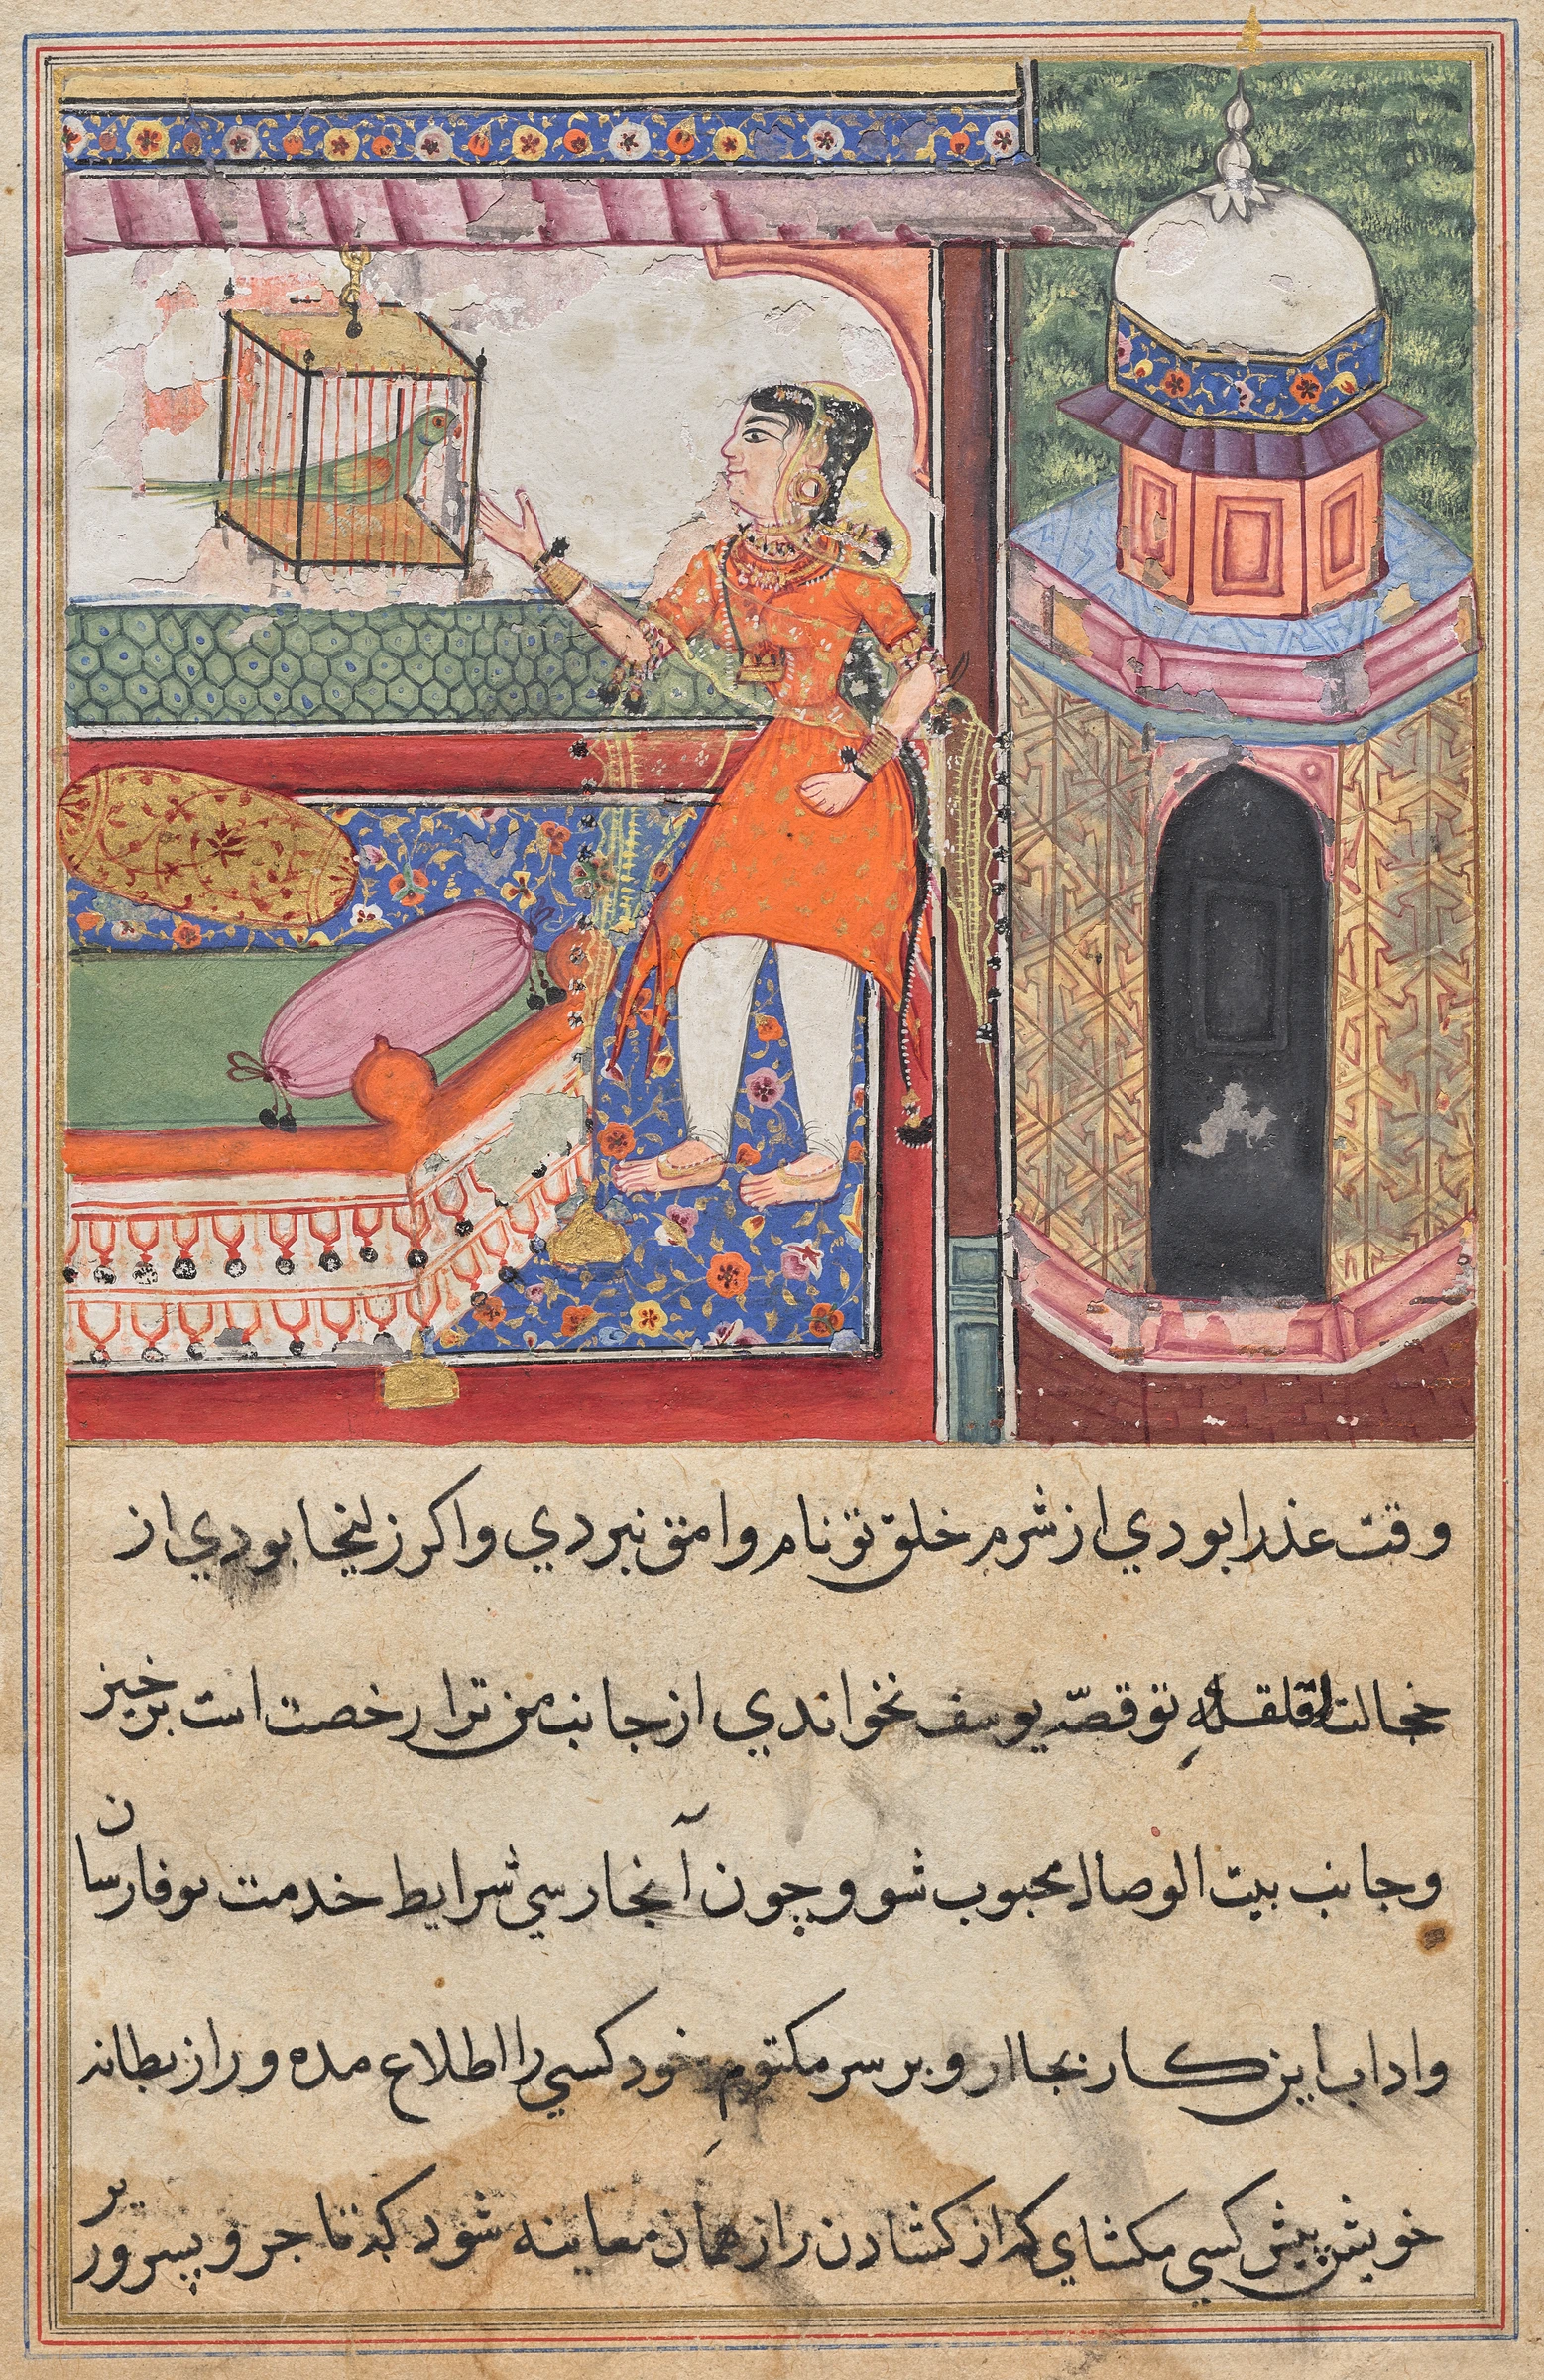 وقت عذرا بودي از شرم خلق تو نام وامق نبردي واكر زليخا بودي از
خجالت قلقله تو قصّه يوسف نخواندي از جانب من ترا رخصت است برخيز
وجانب بيت الوصال محبوب شو وچون آنجا رسي شرايط خدمت بوفا رسان
واداب اين كار بجا ار و بر سر مكتوم خود كسي را اطلاع مده و راز بطانه
خويش پيش كسي مكشاي كه از كشادن راز همان معاينه شود كه تاجر و پسر ور بر